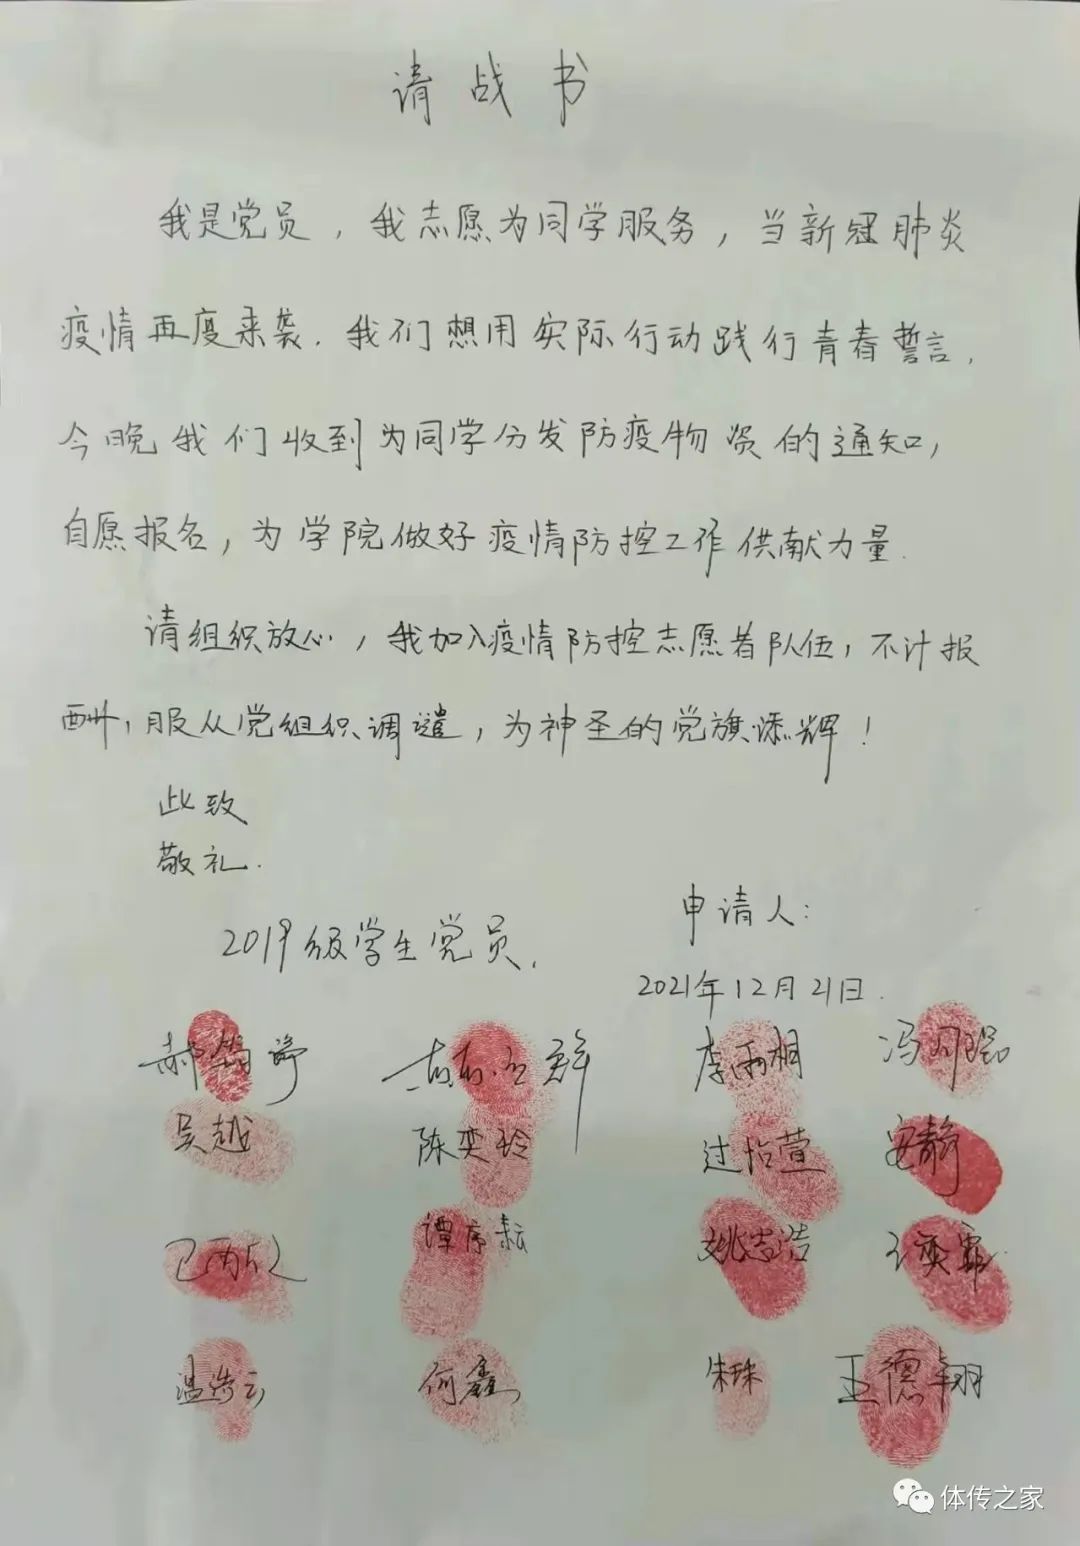 请战书
我是党员，我志愿为同学服务，当新冠肺炎
疫情再度来袭.我们想用实际行动践行青春誓言.
今晚我们收到为同学分发防疫物资的通知，
自愿报名，为学院做好疫情防控工作供献力量.
请组织放心，我加入疫情防控志愿者队伍，不计报
酬，服从党组织调谴，为神圣的党旗添辉！
此致
敬礼.
申请人：
2019级学生党员.
2021年12月21日.
李雨桐
吴越 陈奕玲 过怡萱 安静
谭序耘 姚志浩
温浩云 何鑫 朱珠 王德翔
体传之家